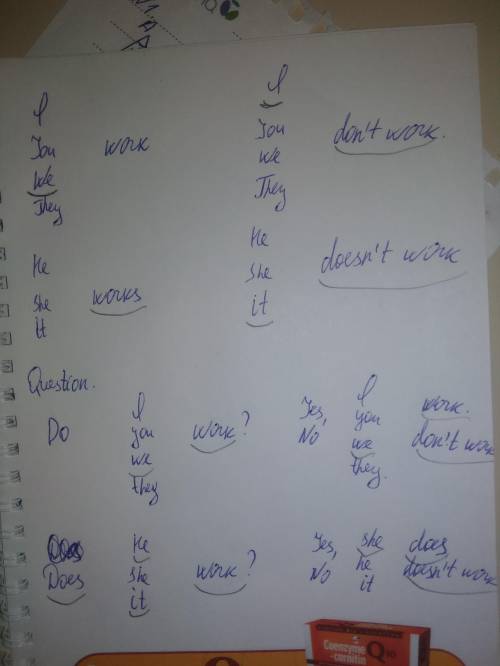 I
You work
We
They
He
she works
it
I
You don't work.
we
They
He
she doesn't work
it
Question.
Do
I
you work?
we
they
Yes, I work.
No you don't work
we
they.
Does
He
she work?
it
Yes, she does
No he doesn't work
it
Coenzyme
Q10